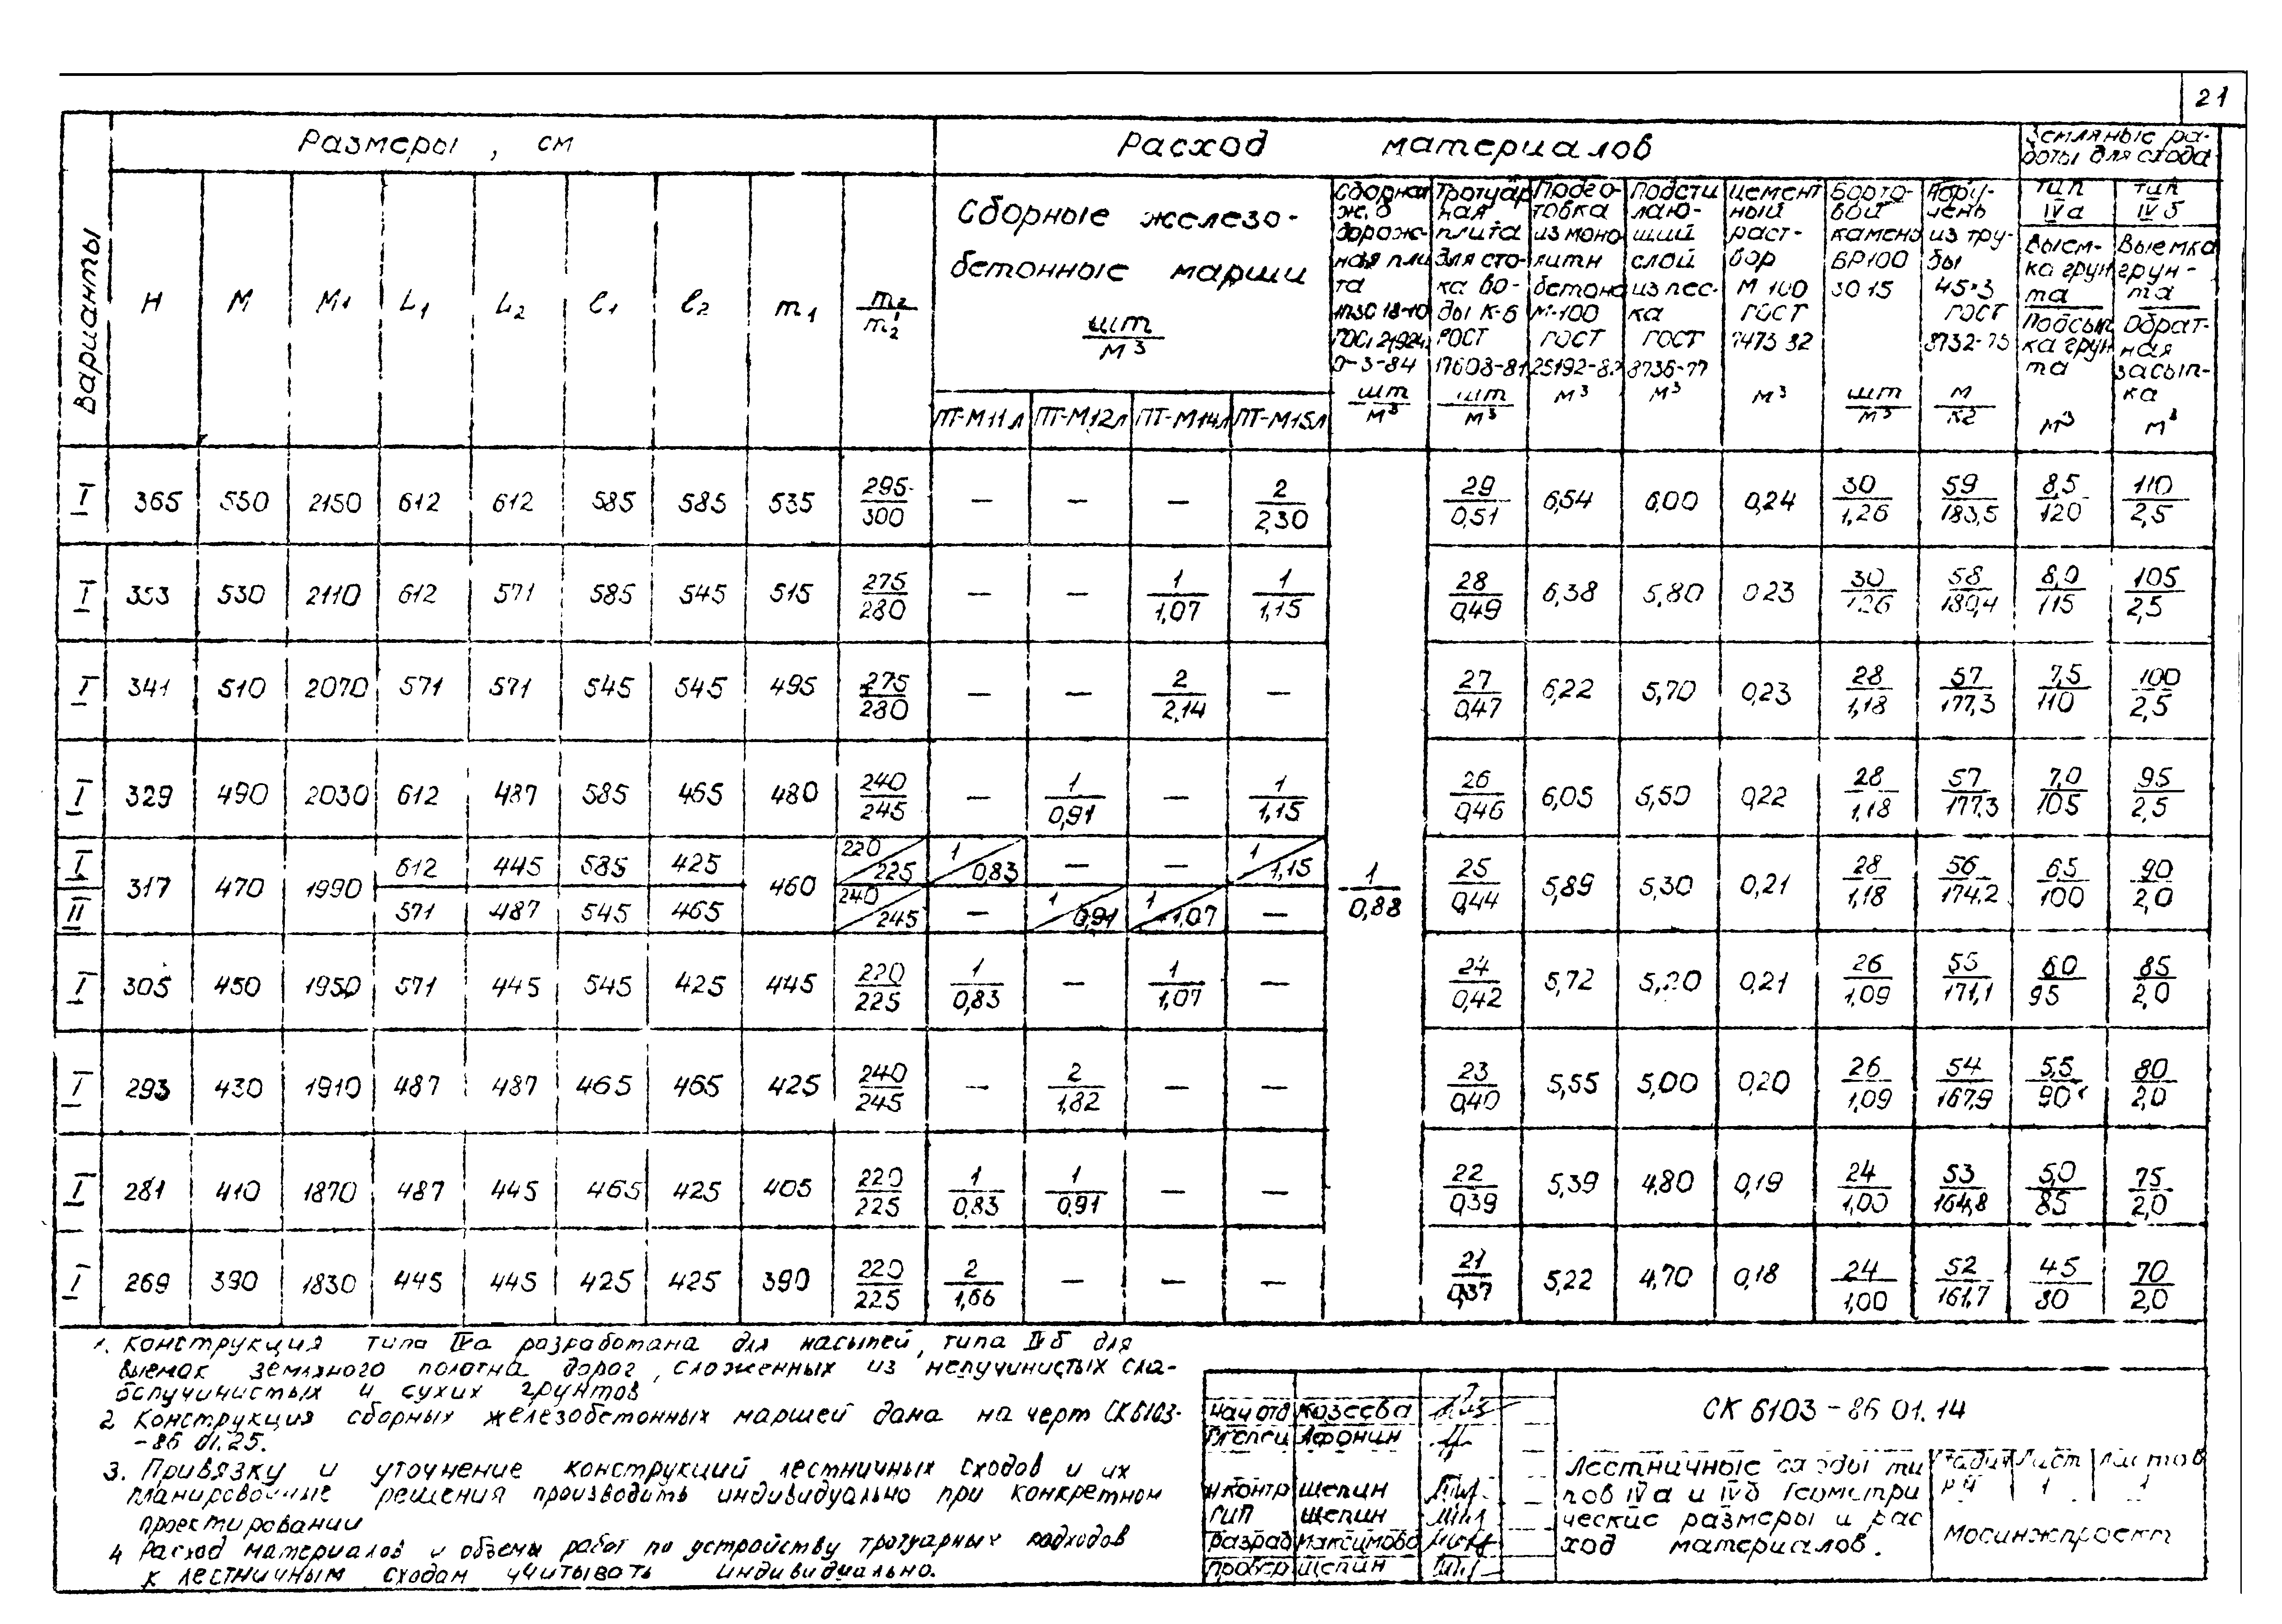 21
Размеры, см
Расход материалов
Земляные ра-
боты для схода
Варианты
H M M1 L1 L2 ℓ1 ℓ2 m1 m2/m2'
Сборные железо-
бетонные марши
шт/м3
ПТ-М11л ПТ-М12л ПТ-М14л ПТ-М15л
Сборная
ж.б
дорож-
ная пли
та
1П30 18-10
ГОСТ 21924.
0-3-84
шт/м3
Тротуар
ная
плита
для сто-
ка во-
ды К-6
ГОСТ
17608-81
шт/м3
Подго-
товка
из моно
литн
бетона
М-100
ГОСТ
25192-82
м3
Подсти
лаю-
щий
слой
из пес-
ка
ГОСТ
8736-77
м3
Цемент
ный
раст-
вор
М 100
ГОСТ
7473 82
м3
Борто-
вой
камень
БР100
30 15
шт/м3
Пору-
чень
из тру-
бы
45×3
ГОСТ
8732-75
м/кг
тип
IVа
Выем-
ка грун
та
Подсып
ка грун
та
м3
тип
IVб
Выемка
грун-
та
Обрат-
ная
засып-
ка
м3
I 365 550 2150 612 612 585 585 535 295/300 — — — 2/2,30 29/0,51 6,54 6,00 0,24 30/1,26 59/183,5 8,5/120 110/2,5
I 353 530 2110 612 571 585 545 515 275/280 — — 1/1,07 1/1,15 28/0,49 6,38 5,80 0,23 30/1,26 58/180,4 8,0/115 105/2,5
I 341 510 2070 571 571 545 545 495 275/280 — — 2/2,14 — 27/0,47 6,22 5,70 0,23 28/1,18 57/177,3 7,5/110 100/2,5
I 329 490 2030 612 487 585 465 480 240/245 — 1/0,91 — 1/1,15 26/0,46 6,05 5,50 0,22 28/1,18 57/177,3 7,0/105 95/2,5
I 612 445 585 425 220/225 1/0,83 — — 1/1,15
317 470 1990 460 1/0,88 25/0,44 5,89 5,30 0,21 28/1,18 56/174,2 6,5/100 90/2,0
II 571 487 545 465 240/245 — 1/0,91 1/1,07 —
I 305 450 1950 571 445 545 425 445 220/225 1/0,83 — 1/1,07 — 24/0,42 5,72 5,20 0,21 26/1,09 55/171,1 6,0/95 85/2,0
I 293 430 1910 487 487 465 465 425 240/245 — 2/1,82 — — 23/0,40 5,55 5,00 0,20 26/1,09 54/167,9 5,5/90 80/2,0
I 281 410 1870 487 445 465 425 405 220/225 1/0,83 1/0,91 — — 22/0,39 5,39 4,80 0,19 24/1,00 53/164,8 5,0/85 75/2,0
I 269 390 1830 445 445 425 425 390 220/225 2/1,66 — — — 21/0,37 5,22 4,70 0,18 24/1,00 52/161,7 4,5/80 70/2,0
1. Конструкция типа IVа разработана для насыпей, типа IVб для
выемок земляного полотна дорог, сложенных из непучинистых сла-
бопучинистых и сухих грунтов
2 Конструкция сборных железобетонных маршей дана на черт СК6103-
-86 01.25.
3. Привязку и уточнение конструкций лестничных сходов и их
планировочные решения производить индивидуально при конкретном
проектировании
4 Расход материалов и объемы работ по устройству тротуарных подходов
к лестничным сходам учитывать индивидуально.
Нач отд Козеева
Гл спец Афонин
Н контр Щепин
ГИП Щепин
Разраб Максимова
Провер Щепин
СК 6103-86 01.14
Лестничные сходы ти
пов IVа и IVб Геометри
ческие размеры и рас
ход материалов.
Стадия Лист Листов
РЧ 1 1
Мосинжпроект